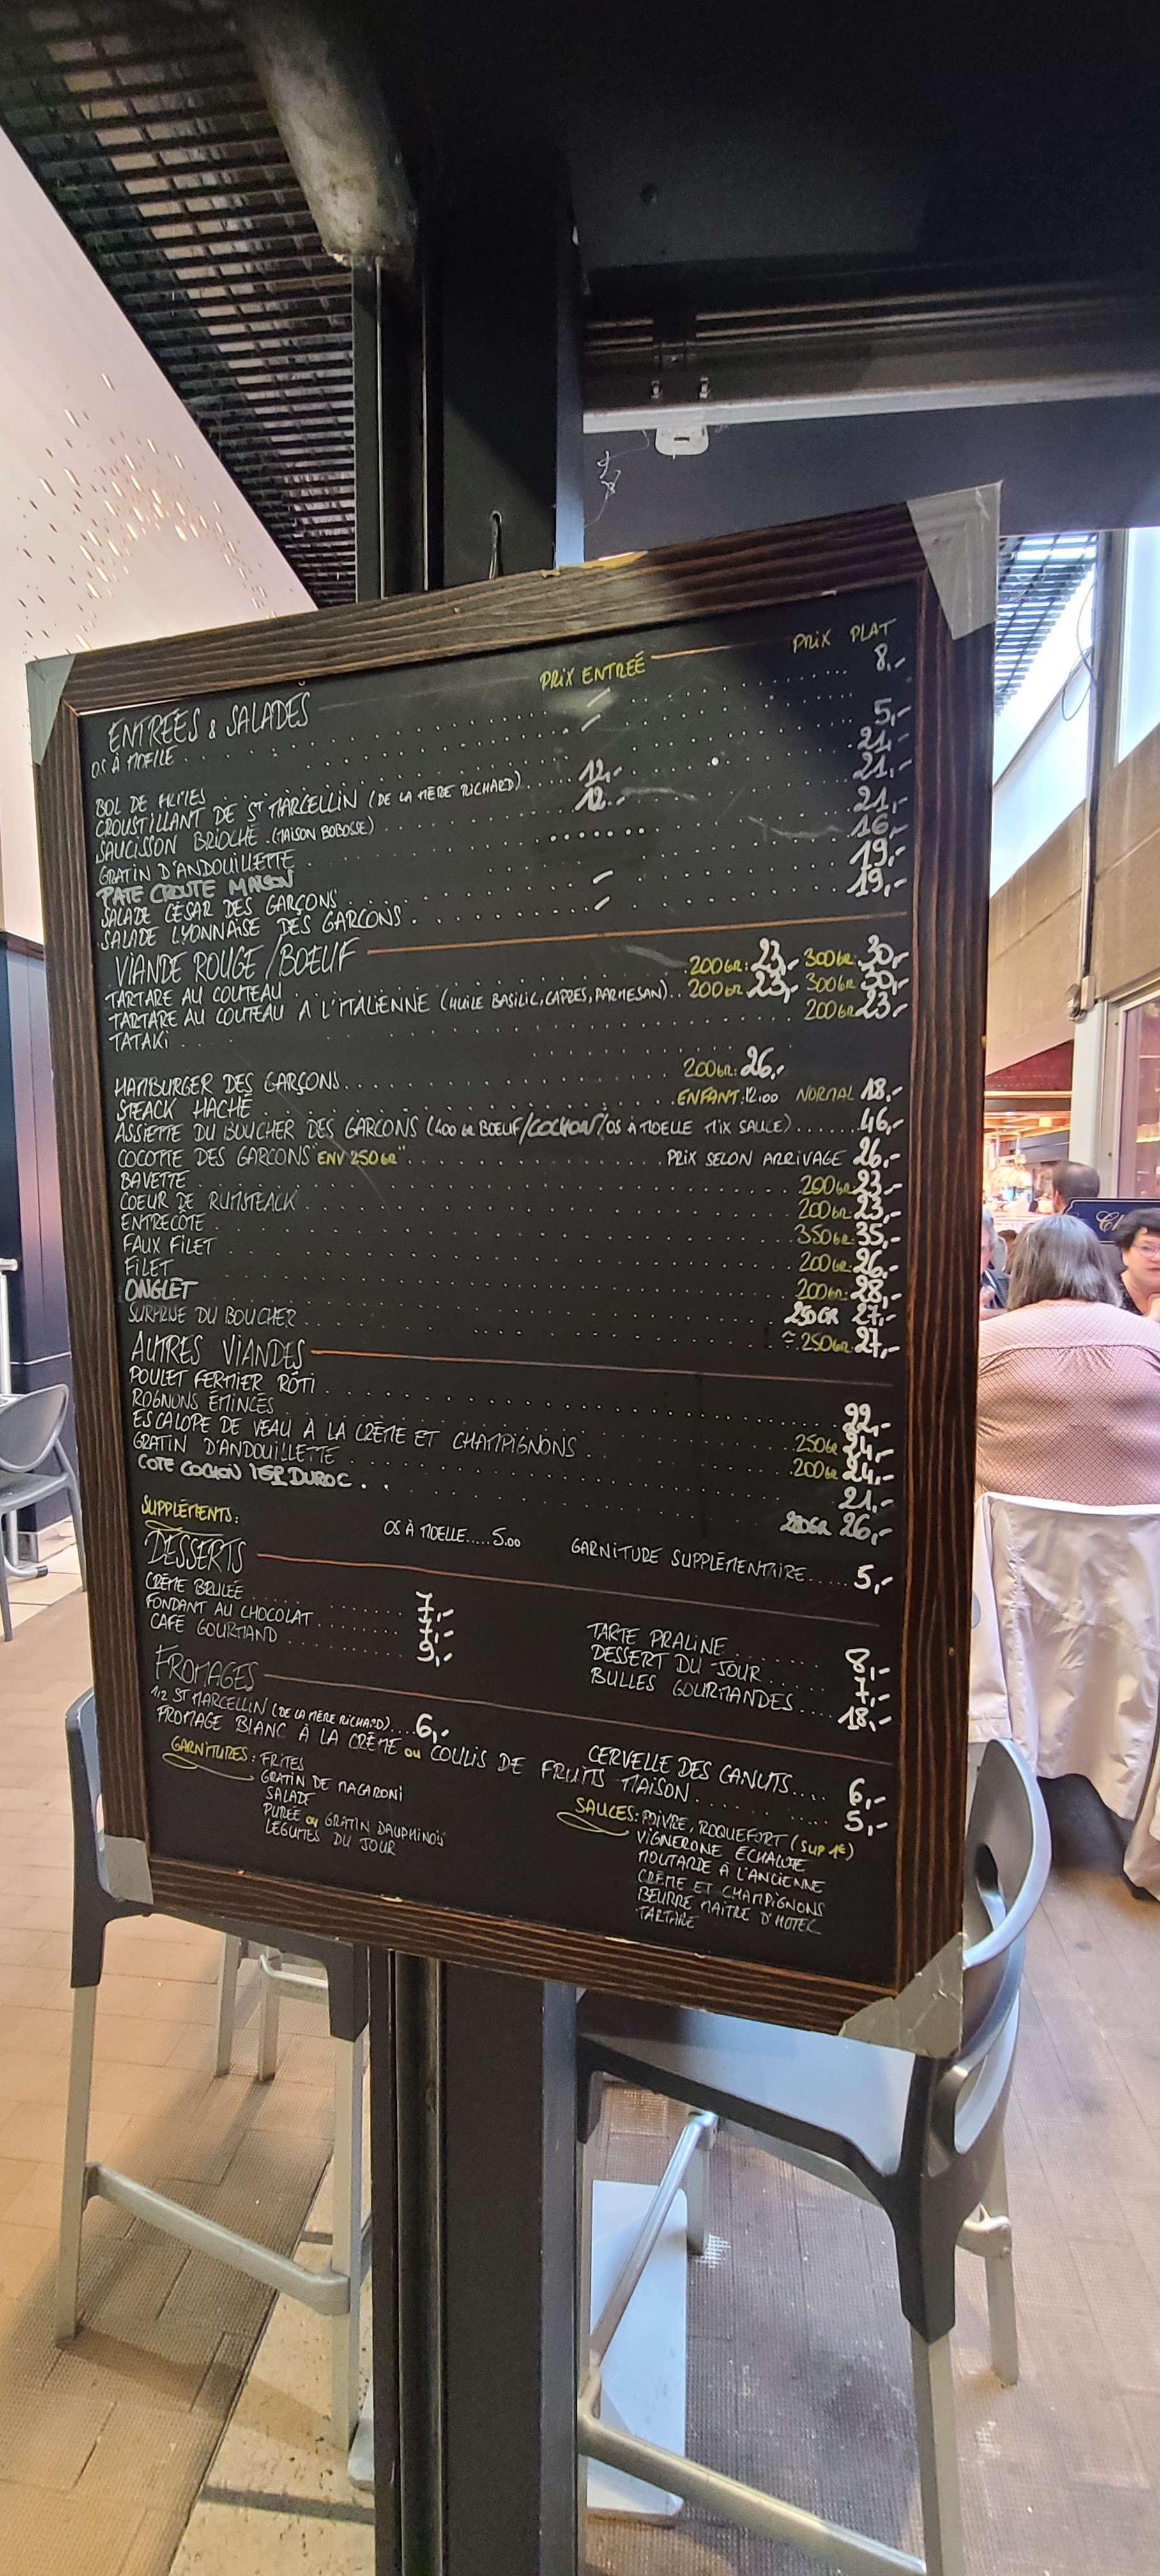 PRIX ENTREÉ PRIX PLAT
ENTREES & SALADES
OS À MOELLE 8,-
BOL DE FRITES 5,-
CROUSTILLANT DE ST MARCELLIN (DE LA MÈRE RICHARD) 12,- 21,-
SAUCISSON BRIOCHÉ (MAISON BOBOSSE) 12,- 21,-
GRATIN D'ANDOUILLETTE 21,-
PATE CROUTE MAISON 16,-
SALADE CÉSAR DES GARÇONS 19,-
SALADE LYONNAISE DES GARÇONS 19,-
VIANDE ROUGE / BOEUF
TARTARE AU COUTEAU 200GR: 23,- 300GR: 30,-
TARTARE AU COUTEAU A L'ITALIENNE (HUILE BASILIC, CAPRES, PARMESAN).. 200GR 23,- 300GR 30,-
TATAKI 200GR 23,-
HAMBURGER DES GARÇONS 200GR: 26,-
STEACK HACHÉ ENFANT: 12,00 NORMAL 18,-
ASSIETTE DU BOUCHER DES GARÇONS (400 GR BOEUF/COCHON/OS À MOELLE MIX SALADE) 46,-
COCOTTE DES GARCONS "ENV 250GR" PRIX SELON ARRIVAGE 26,-
BAVETTE 200GR 23,-
COEUR DE RUMSTEACK 200GR: 23,-
ENTRECÔTE 350GR: 35,-
FAUX FILET 200GR: 26,-
FILET 200GR: 28,-
ONGLET 250GR 27,-
SURPRISE DU BOUCHER ≈ 250GR: 27,-
AUTRES VIANDES
POULET FERMIER RÔTI 22,-
ROGNONS ÉMINCÉS 250GR 24,-
ESCALOPE DE VEAU À LA CRÈME ET CHAMPIGNONS 200GR 24,-
GRATIN D'ANDOUILLETTE 21,-
COTE COCHON DUROC 26,-
SUPPLÉMENTS: OS À MOELLE.....5.00 GARNITURE SUPPLÉMENTAIRE..... 5,-
DESSERTS
CRÈME BRULÉE 7,- TARTE PRALINE 8,-
FONDANT AU CHOCOLAT 7,- DESSERT DU JOUR 7,-
CAFÉ GOURMAND 9,- BULLES GOURMANDES.... 18,-
FROMAGES
1/2 ST MARCELLIN (DE LA MÈRE RICHARD)....6,- CERVELLE DES CANUTS.... 6,-
FROMAGE BLANC À LA CRÈME ou COULIS DE FRUITS MAISON 5,-
GARNITURES: FRITES
GRATIN DE MACARONI
SALADE
PURÉE ou GRATIN DAUPHINOIS
LEGUMES DU JOUR
SAUCES: POIVRE, ROQUEFORT (SUP 1€)
VIGNERONE ECHALOTE
MOUTARDE À L'ANCIENNE
CRÈME ET CHAMPIGNONS
BEURRE MAITRE D'HOTEL
TARTARE